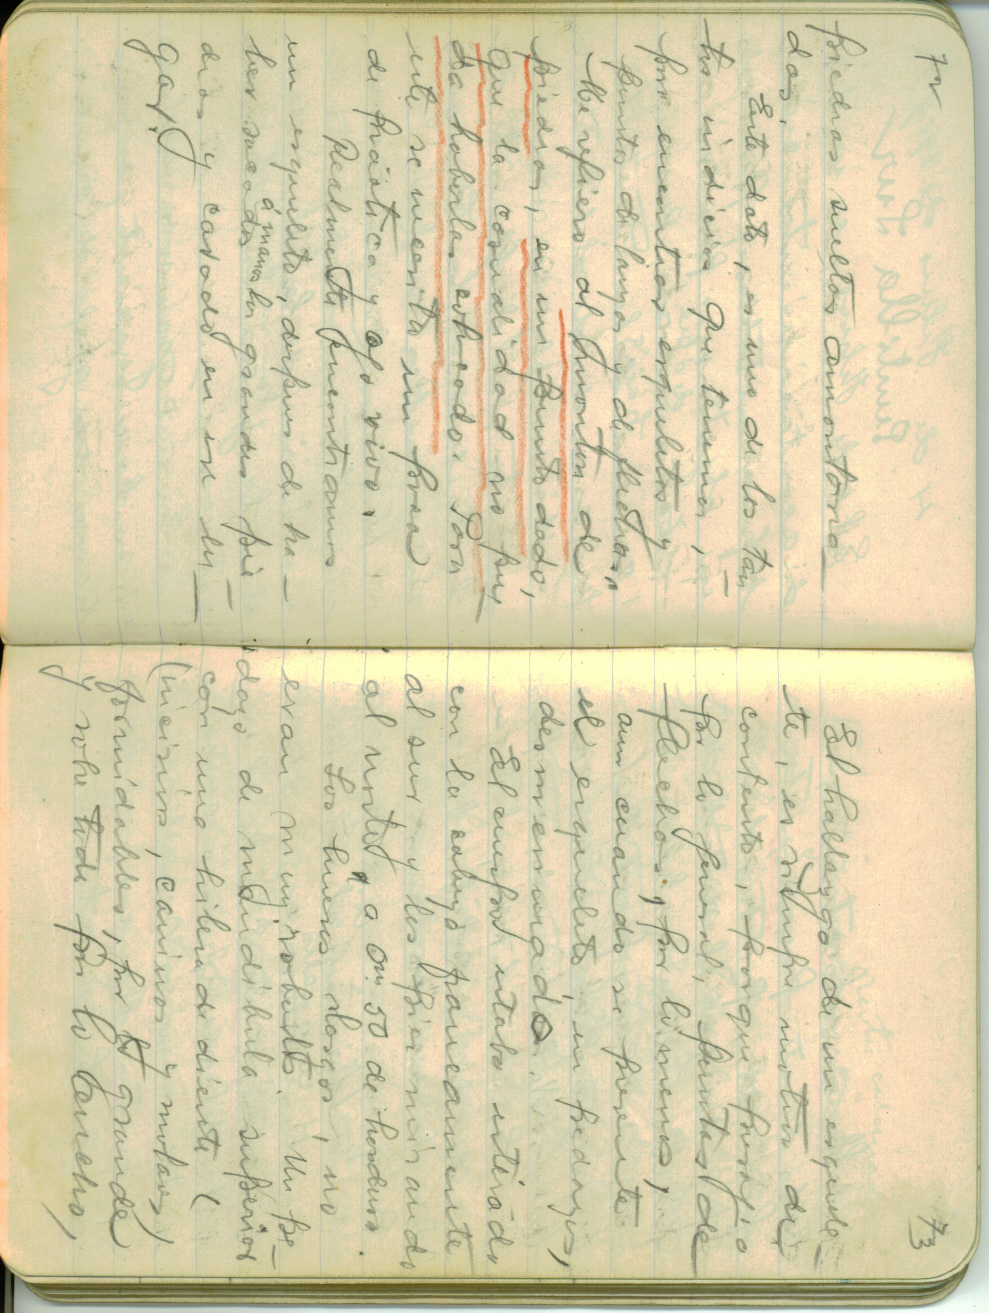 72
piedras sueltas amontona
das.
Este dato, es uno de los tan
tos indicios que tenemos,
por encontrar esqueletos y
puntas de lanzas y de flechas.
Me refiero al "montón de
piedras, en un punto dado,
que la casualidad no pu
da haberlas colocado. Para
esto se necesita un poco
de práctica y ojo vivo.
Realmente encontramos
un esqueleto, después de ha-
ber sacado a mano las grandes pie-
dras y cavado en ese lu-
gar.
73
El hallazgo de un esquele-
te, es siempre motivo de
contento, porque presagio
por lo general, puntas de
flechas, por lo menos,
aun cuando se presente
el esqueleto, en pedazos,
desmenuzado.
El cuerpo estaba enterado
con la cabeza francamente
al sur y los pies mirando
al norte, a 0m.50 de hondura.
Los huesos largos, no
eran muy robustos. Un pe-
dazo de mandibula superior
con una hilera de diente (
(incisivos, caninos y molares)
formidables, por lo grande
y sobre todo por lo ancho,